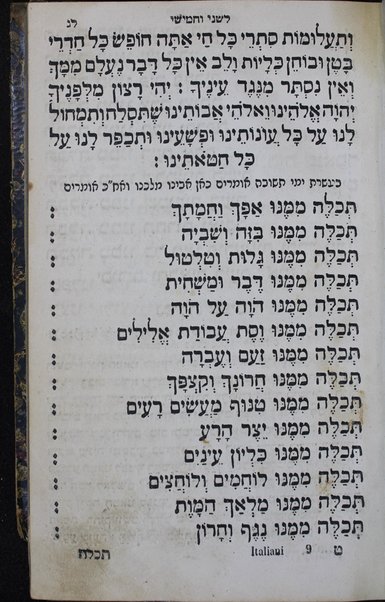 לשני וחמישי לג
וְתַעֲלוּמוֹת סִתְרֵי כָּל חַי אַתָּה חוֹפֵשׂ כָּל חַדְרֵי
בָטֶן וּבוֹחֵן כְּלָיוֹת וָלֵב אֵין כָּל דָּבָר נֶעְלָם מִמָּךְ
וְאֵין נִסְתָּר מִנֶּגֶד עֵינֶיךָ : יְהִי רָצוֹן מִלְּפָנֶיךָ
יְהֹוָה אֱלֹהֵינוּ וֵאלֹהֵי אֲבוֹתֵינוּ שֶׁתִּסְלַח וְתִמְחוֹל
לָנוּ עַל כָּל עֲוֹנוֹתֵינוּ וּפְשָׁעֵינוּ וּתְכַפֵּר לָנוּ עַל
כָּל חַטֹּאתֵינוּ :
בעשרת ימי תשובה אומרים כאן אבינו מלכנו ואח"כ אומרים
תְּכַלֶּה מִמֶּנּוּ אַפְּךָ וַחֲמָתֶךָ :
תְּכַלֶּה מִמֶּנּוּ בִּזָּה וְשִׁבְיָה :
תְּכַלֶּה מִמֶּנּוּ גָּלוּת וְטִלְטוּל :
תְּכַלֶּה מִמֶּנּוּ דֶּבֶר וּמַשְׁחִית :
תְּכַלֶּה מִמֶּנּוּ הֹוָה עַל הֹוָה :
תְּכַלֶּה מִמֶּנּוּ וֶסֶת עֲבוֹדַת אֱלִילִים :
תְּכַלֶּה מִמֶּנּוּ זַעַם וְעֶבְרָה :
תְּכַלֶּה מִמֶּנּוּ חֲרוֹנְךָ וְקִצְפָּךְ :
תְּכַלֶּה מִמֶּנּוּ טִנּוּף מַעֲשִׂים רָעִים :
תְּכַלֶּה מִמֶּנּוּ יֵצֶר הָרָע :
תְּכַלֶּה מִמֶּנּוּ כִּלְיוֹן עֵינַיִם :
תְּכַלֶּה מִמֶּנּוּ לוֹחֲמִים וְלוֹחֲצִים :
תְּכַלֶּה מִמֶּנּוּ מַלְאַךְ הַמָּוֶת :
תְּכַלֶּה מִמֶּנּוּ נֶגֶף וְחָרוֹן :
ט 9 Italiani תכלה